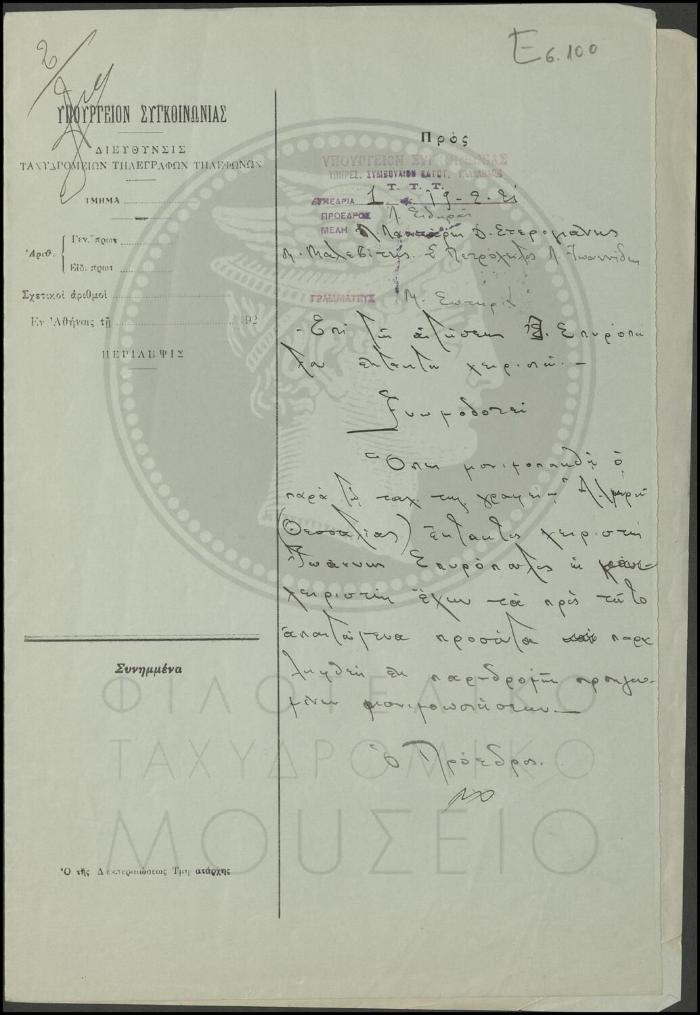 Ε 6.100
ΥΠΟΥΡΓΕΙΟΝ ΣΥΓΚΟΙΝΩΝΙΑΣ
ΔΙΕΥΘΥΝΣΙΣ
ΤΑΧΥΔΡΟΜΕΙΩΝ ΤΗΛΕΓΡΑΦΩΝ ΤΗΛΕΦΩΝΩΝ
ΤΜΗΜΑ
Ἀριθ. { Γεν. πρωτ
Εἰδ. πρωτ
Σχετικοὶ ἀριθμοί
Ἐν Ἀθήναις τῇ 192
ΠΕΡΙΛΗΨΙΣ
Συνημμένα
Ὁ τῆς Διεκπεραιώσεως Τμηματάρχης
Πρὸς
ΥΠΟΥΡΓΕΙΟΝ ΣΥΓΚΟΙΝΩΝΙΑΣ
ΥΠΗΡΕΣ. ΣΥΜΒΟΥΛΙΟΝ
Τ. Τ. Τ.
ΣΥΝΕΔΡΙΑ 1 19-2-21
ΠΡΟΕΔΡΟΣ
ΜΕΛΗ Δ. Στερογιάννης
Μ. Μαλεβίτης Σ. Πετρόχειλος Ἰωαννίδης
ΓΡΑΜΜΑΤΕΥΣ Μ. Σωτηρι
Ἐπὶ τῆς αἰτήσεως Σπυρόπου
λου ἐκτάκτου χειριστοῦ.-
Γνωμοδοτεῖ
Ὅπως μονιμοποιηθῇ ὁ
παρὰ τῷ ταχ. τηλ. γραφείῳ Ἁλμυροῦ
(Θεσσαλίας) ἔκτακτος χειριστὴς
Ἰωάννης Σπυρόπουλος ὡς
χειριστὴς ἔχων τὰ πρὸς τοῦτο
ἀπαιτούμενα προσόντα παρα
ληφθεὶς ἐκ παραδρομῆς προηγου
μένων μονιμοποιήσεων.-
Ὁ Πρόεδρος.
ΦΙΛΟΤΕΛΙΚΟ
ΤΑΧΥΔΡΟΜΙΚΟ
ΜΟΥΣΕΙΟ